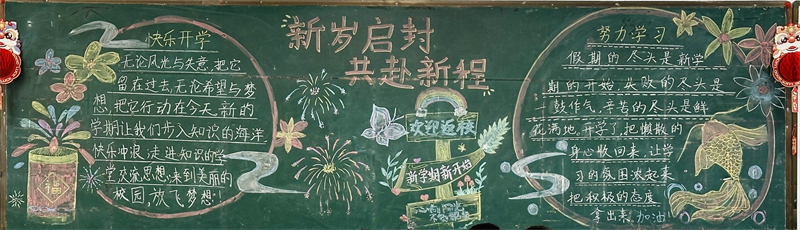 快乐开学
无论风光与失意,把它
留在过去,无论希望与梦
想,把它行动在今天,新的
学期让我们步入知识的海洋
快乐冲浪,走进知识的学
堂交流思想,来到美丽的
校园,放飞梦想!
福
新岁启封
共赴新程
欢迎返校
新学期新开始
努力学习
假期的尽头是新学
期的开始,失败的尽头是
一鼓作气,辛苦的尽头是鲜
花满地,开学了,把懒散的
身心收回来,让学
习的氛围浓起来
把积极的态度
拿出来,加油!